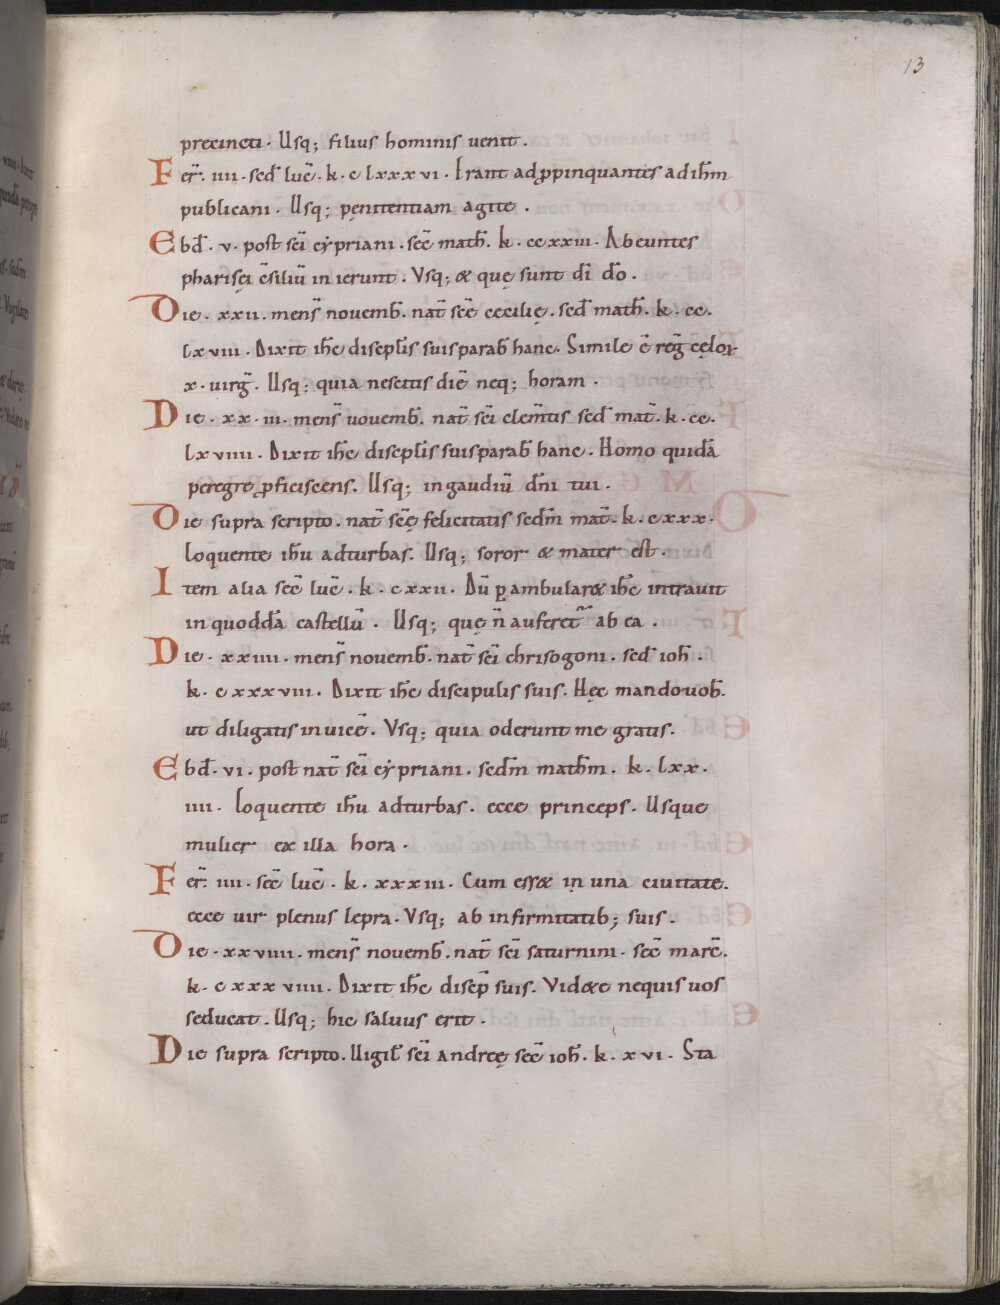 13
precincti · Usq; filius hominis uenit .
Fer̃ · iiii · sed̃ luc̃ · k · c lxxxvi · Erant adp̱pinquantes ad ih̄m
publicani · Usq; pęnitentiam agite .
Ebd̃ · v · post sc̄i cẏpriani · sec̃ math̃ · k · ccxxiii · Abeuntes
pharisęi c̄siliū in ierunt . Vsq; & quę sunt dī dō .
Die · xxii · mens̃ nouemb̃ · nat̃ sc̄ę cecilię · sed̃ math̃ · k · cc ·
lxviii · Dixit ih̄c discipl̃is suis parab̃ hanc · Simile ē reg̃ cęlor
x · uirg̃ · Usq; quia nescitis diē neq; horam ·
Die · xx · iii · mens̃ uouemb̃ · nat̃ sc̄i clem̃tis sed̃ mat̃ · k · cc ·
lxviiii · Dixit ih̄c discipl̃is suis parab̃ hanc · Homo quidā
peregre p̱ficiscens · Usq; in gaudiū dn̄i tui .
Die supra scripto · nat̃ sc̄ę felicitatis sedm̃ mat̃ · k · cxxx ·
loquente ih̄u adturbas · Usq; soror & mater est .
Item alia sec̃ luc̃ · k · cxxii · Dū p̱ ambular& ih̄c intrauit
in quoddā castellū · Usq; quę n̄ auferet᷑ ab ea .
Die · xxiiii · mens̃ nouemb̃ · nat̃ sc̄i chrisogoni · sed̃ ioh̃ ·
k · cxxxviii · Dixit ih̄c discipulis suis · Hęc mando uob̃ .
ut diligatis inuicē · Vsq; quia oderunt me gratis .
Ebd̃ · vi · post nat̃ sc̄i cẏpriani · sedm̃ math̃m · k · lxx ·
iiii · loquente ih̄u adturbas · ecce princeps · Usque
mulier ex illa hora ·
Fer̃ · iiii · sec̃ luc̃ · k · xxxiii · Cum ess& in una ciuitate ·
ecce uir plenus lepra · Vsq; ab infirmitatib; suis .
Die · xxviiii · mens̃ nouemb̃ · nat̃ sc̄i saturnini · sec̃ marc̃ ·
k · cxxxviiii · Dixit ih̄c discip̃ suis · Vid&e nequis uos
seducat · Usq; hic saluus erit ·
Die supra scripto · Uigil̃ sc̄i andreę sec̃ ioh̃ · k · xvi · Sta